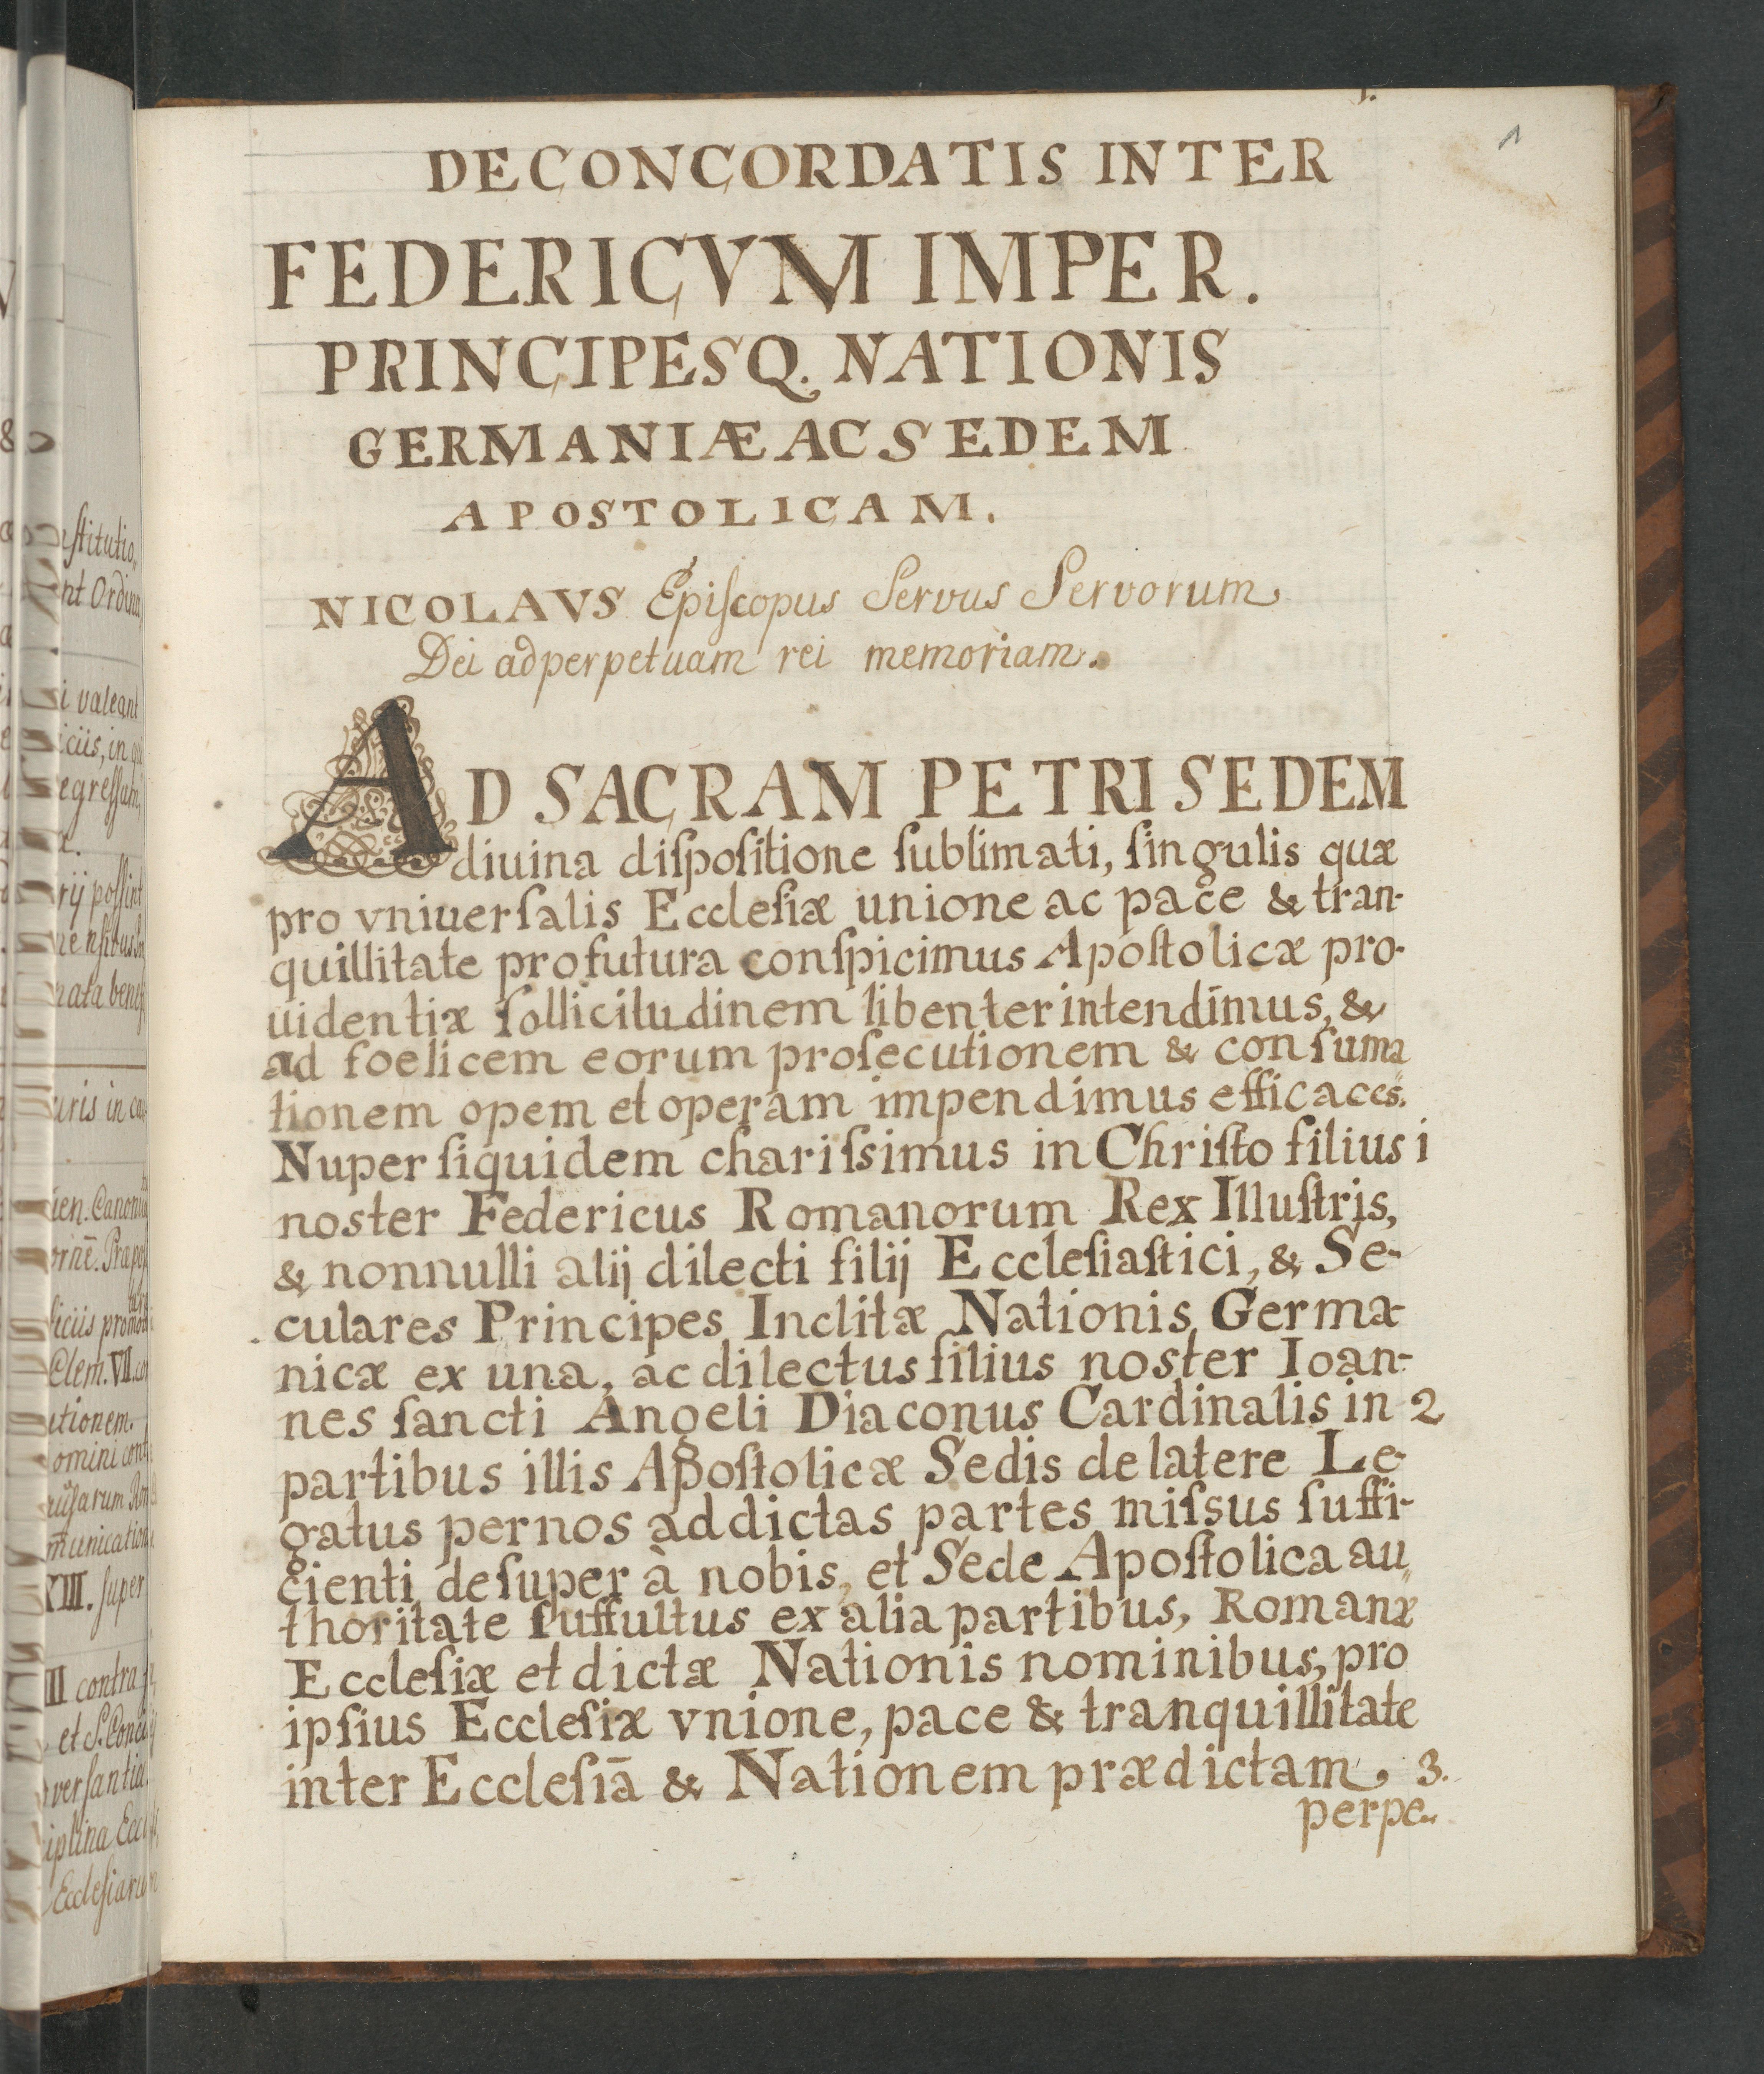 1.
1
DE CONCORDATIS INTER
FEDERICVM IMPER.
PRINCIPESQ. NATIONIS
GERMANIÆ AC SEDEM
APOSTOLICAM.
NICOLAVS Epiſcopus Servus Servorum
Dei ad perpetuam rei memoriam.
AD SACRAM PETRI SEDEM
diuina diſpoſitione ſublimati, ſingulis quæ
pro vniuerſalis Eccleſiæ unione ac pace & tran-
quillitate profutura conſpicimus Apoſtolicæ pro-
uidentiæ ſollicitudinem libenter intendimus, &
ad foelicem eorum proſecutionem & conſuma
tionem opem et operam impendimus efficaces.
Nuper ſiquidem chariſsimus in Chriſto filius i
noster Federicus Romanorum Rex Illuſtris,
& nonnulli alij dilecti filij Eccleſiaſtici, & Se-
culares Principes Inclitæ Nationis Germa-
nicæ ex una, ac dilectus filius noster Ioan-
nes ſancti Angeli Diaconus Cardinalis in 2
partibus illis Apoſtolicæ Sedis de latere Le-
gatus per nos ad dictas partes miſsus ſuffi-
cienti deſuper à nobis, et Sede Apoſtolica au„
thoritate ſuffultus ex alia partibus, Romanæ
Eccleſiæ et dictæ Nationis nominibus, pro
ipſius Eccleſiæ vnione, pace & tranquillitate
inter Eccleſiā & Nationem prædictam, 3.
perpe„
ſtitutio„
nt Ordina
i valeant
iciis, in qui
egreſſum,
rij poſſint
nata benef
uris in ca
ien. Canoni
ornē. Præpoſ
ficiis promo
Clem. VII. co
utionem.
omini cont
munication
XIII. ſuper
III contra
et S. Conci
verſantia
iplina Eccl
Eccleſiaru